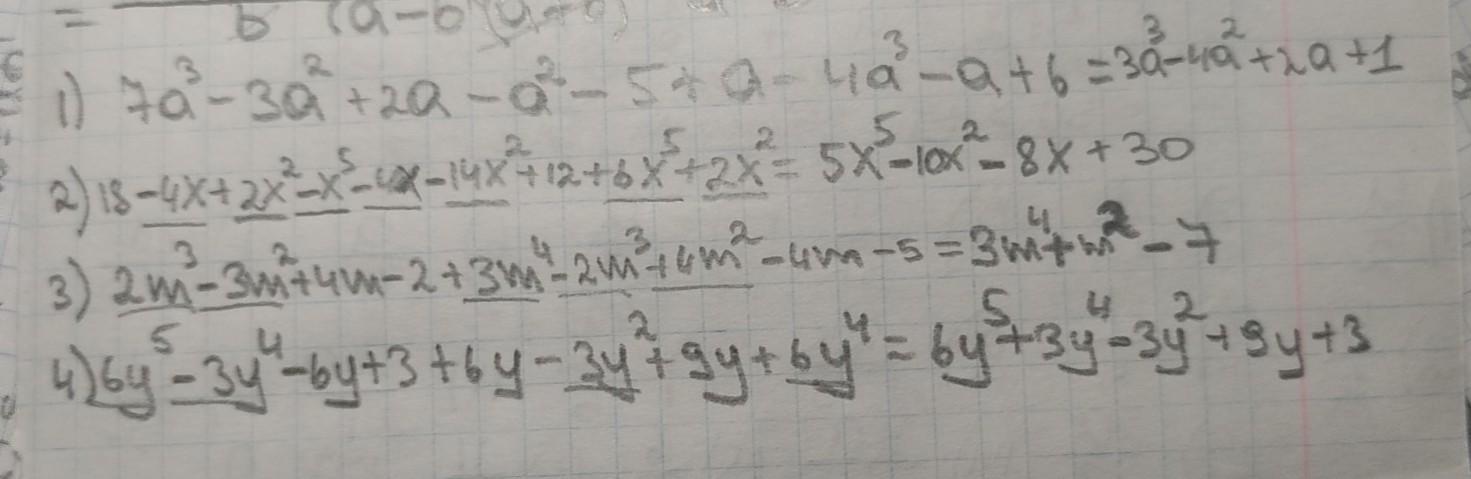 = b (a-b)(a+b)
1) 7a³-3a²+2a-a²-5+a-4a³-a+6=3a³-4a²+2a+1
2) 18-4x+2x²-x⁵-4x-14x²+12+6x⁵+2x²=5x⁵-10x²-8x+30
3) 2m³-3m²+4m-2+3m⁴-2m³+4m²-4m-5=3m⁴+m²-7
4) 6y⁵-3y⁴-6y+3+6y-3y²+9y+6y⁴=6y⁵+3y⁴-3y²+9y+3